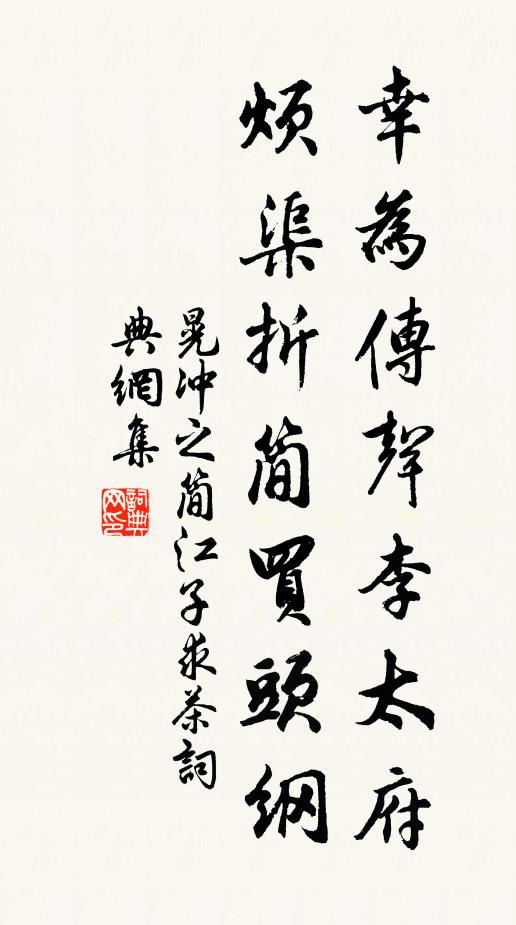 幸為傳聲李太府
煩渠折簡買頭綱
晃沖之簡江子求茶詞
典網集
詞典
网印